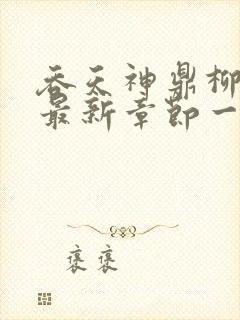 吞天神鼎柳
最新章節一
褒褒